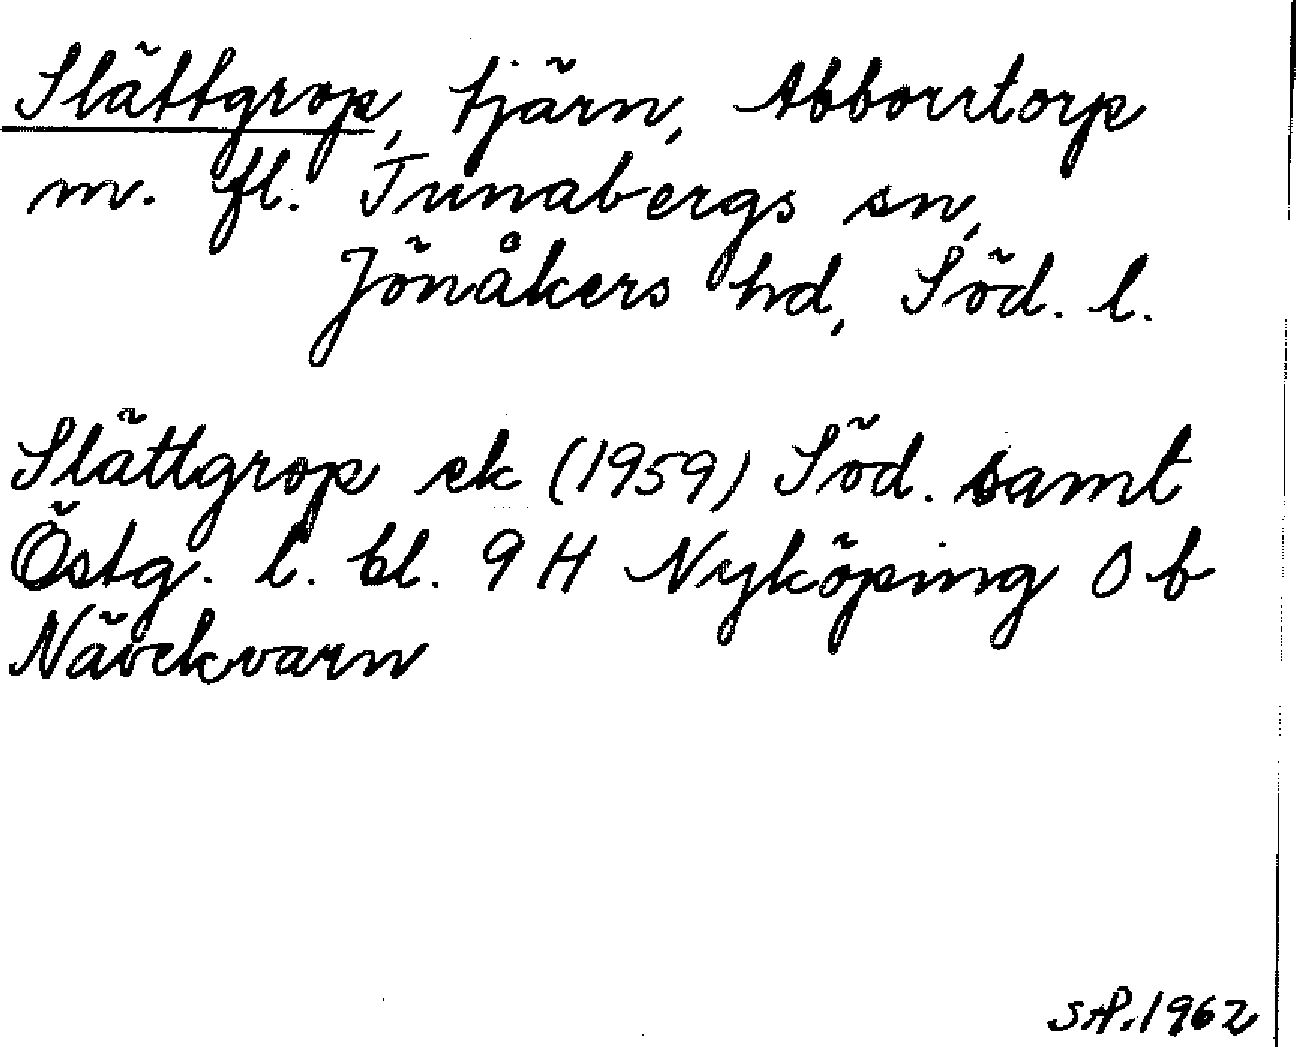 Slättgrop, tjärn, Abborrtorp
m. fl. Tunabergs sn,
Jönåkers hd, Söd. l.
Slättgrop ek (1959) Söd. samt
Östg. l. bl. 9 H Nyköping O b
Nävekvarn
SAP. 1962